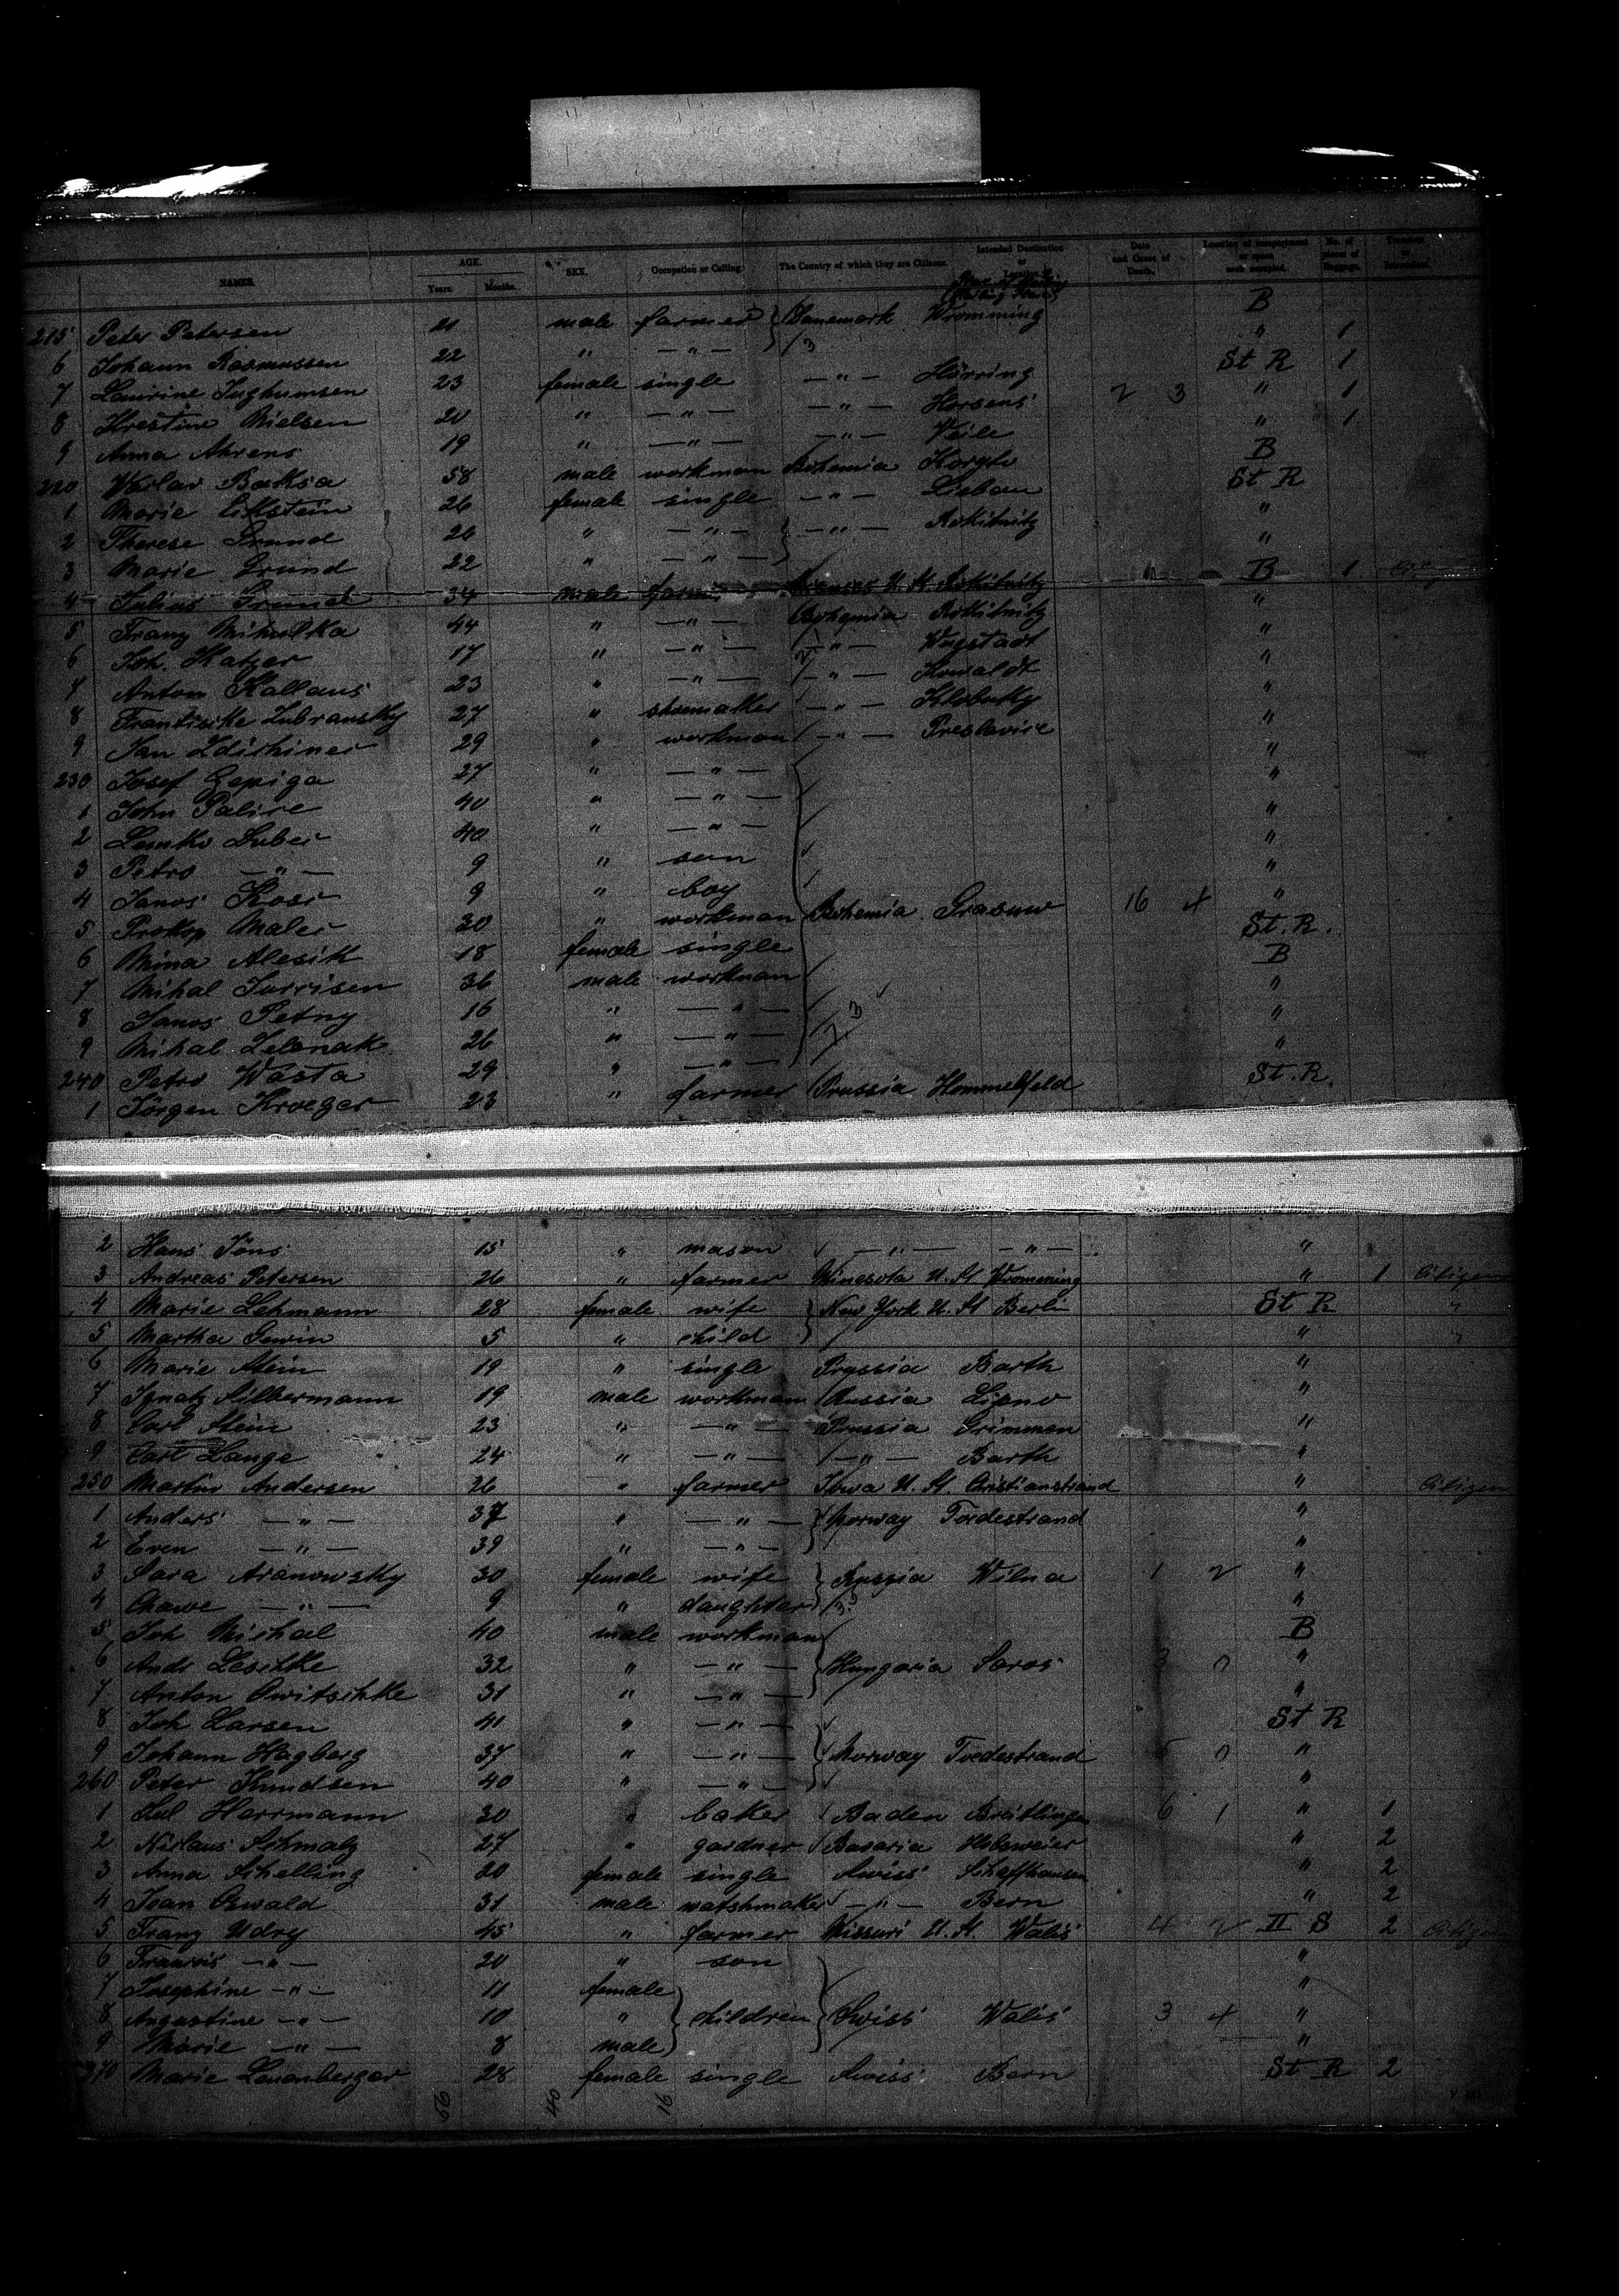 NAMES. AGE. Years. Months. SEX. Occupation or Calling. The Country of which they are Citizens. Intended Destination or Location Date and Cause of Death. Location of compartment or space each occupied. No. of pieces of Baggage. Transient or
215 Peter Petersen 21 male farmer Danemark Wromming B
6 Johann Rasmussen 22 " — " — " 1
7 Laurine 23 female single — " — Hörring St R 1
8 Krestine Nielsen 20 " — " — — " — Horsens 2 3 " 1
9 Anna Ahrens 19 " — " — — " — Veile " 1
220 58 male workman Bohemia B
1 Marie 26 female single — " — Liebau St R
2 Therese Grund 26 " — " — — " — Rokitnitz "
3 Marie Grund 22 " — " — "
4 Julius Grund 34 male farmer Kansas U. St. Rokitnitz B 1
5 Franz Mihulka 44 " — " — Bohemia Rokitnitz "
6 Joh. Katzer 17 " — " — — " — Wagstadt "
7 Anton Kallaus 23 " — " — — " — "
8 27 " shoemaker — " — Klobuky "
9 Jan 29 " workman — " — "
230 Josef 27 " — " — "
1 John Palire 40 " — " — "
2 40 " — " — "
3 Petro — " — 9 " son "
4 Janos 9 " boy "
5 Prokop Malei 30 " workman Bohemia 16 4 "
6 Mina Alesik 18 female single St. R.
7 Mihal Jurrisen 36 male workman B
8 Janos Petny 16 " — " — "
9 Mihal Zelenak 26 " — " — "
240 Petro Wasta 29 " — " — "
1 Jörgen Kroeger 23 " farmer Prussia Hommelfeld St. R.
2 Hans Jöns 15 " mason — " — — " — "
3 Andreas Petersen 26 " farmer Minesota U. St Wromming " 1 Citizen
4 Marie Lehmann 28 female wife New York U. St Berlin St R "
5 Martha Gewin 5 " child " "
6 Marie Stein 19 " single Prussia Barth "
7 Ignatz Silbermann 19 male workman Russia Lipno "
8 Carl Stein 23 " — " — Prussia Grimmen "
9 Carl Lange 24 " — " — — " — Barth "
250 Martin Andersen 26 " farmer Iowa U. St. Christianstrand " Citizen
1 Anders — " — 37 " — " — Norway Tvedestrand "
2 Even — " — 39 " — " — "
3 Sara Aranowsky 30 female wife Russia Wilna 1 2 "
4 Chawe — " — 9 " daughter "
5 Joh Michal 40 male workman B
6 Andr Lesitke 32 " — " — Hungaria Saros 3 0 "
7 Anton Owitschke 31 " — " — "
8 Joh Larsen 41 " — " — St R
9 Johann Hagberg 37 " — " — Norway Tvedestrand 5 0 "
260 Peter Knudsen 40 " — " — "
1 Herrmann 30 " baker Baden 6 1 " 1
2 Niclaus Schmalz 27 " gardner Bavaria " 2
3 Anna Schelling 20 female single Swiss Schaffhausen " 2
4 Jean Oswald 31 male watshmaker — " — Bern " 2
5 Franz Udry 45 " farmer Missuri U. St. Walis 4 2 II S 2 Citizen
6 Francois — " — 20 " son "
7 Josephine — " — 11 female "
8 Augustine — " — 10 " children Swiss Walis 3 4 "
9 Marie — " — 8 male "
270 Marie Leuenberger 28 female single Swiss Bern St R 2
56 40 16